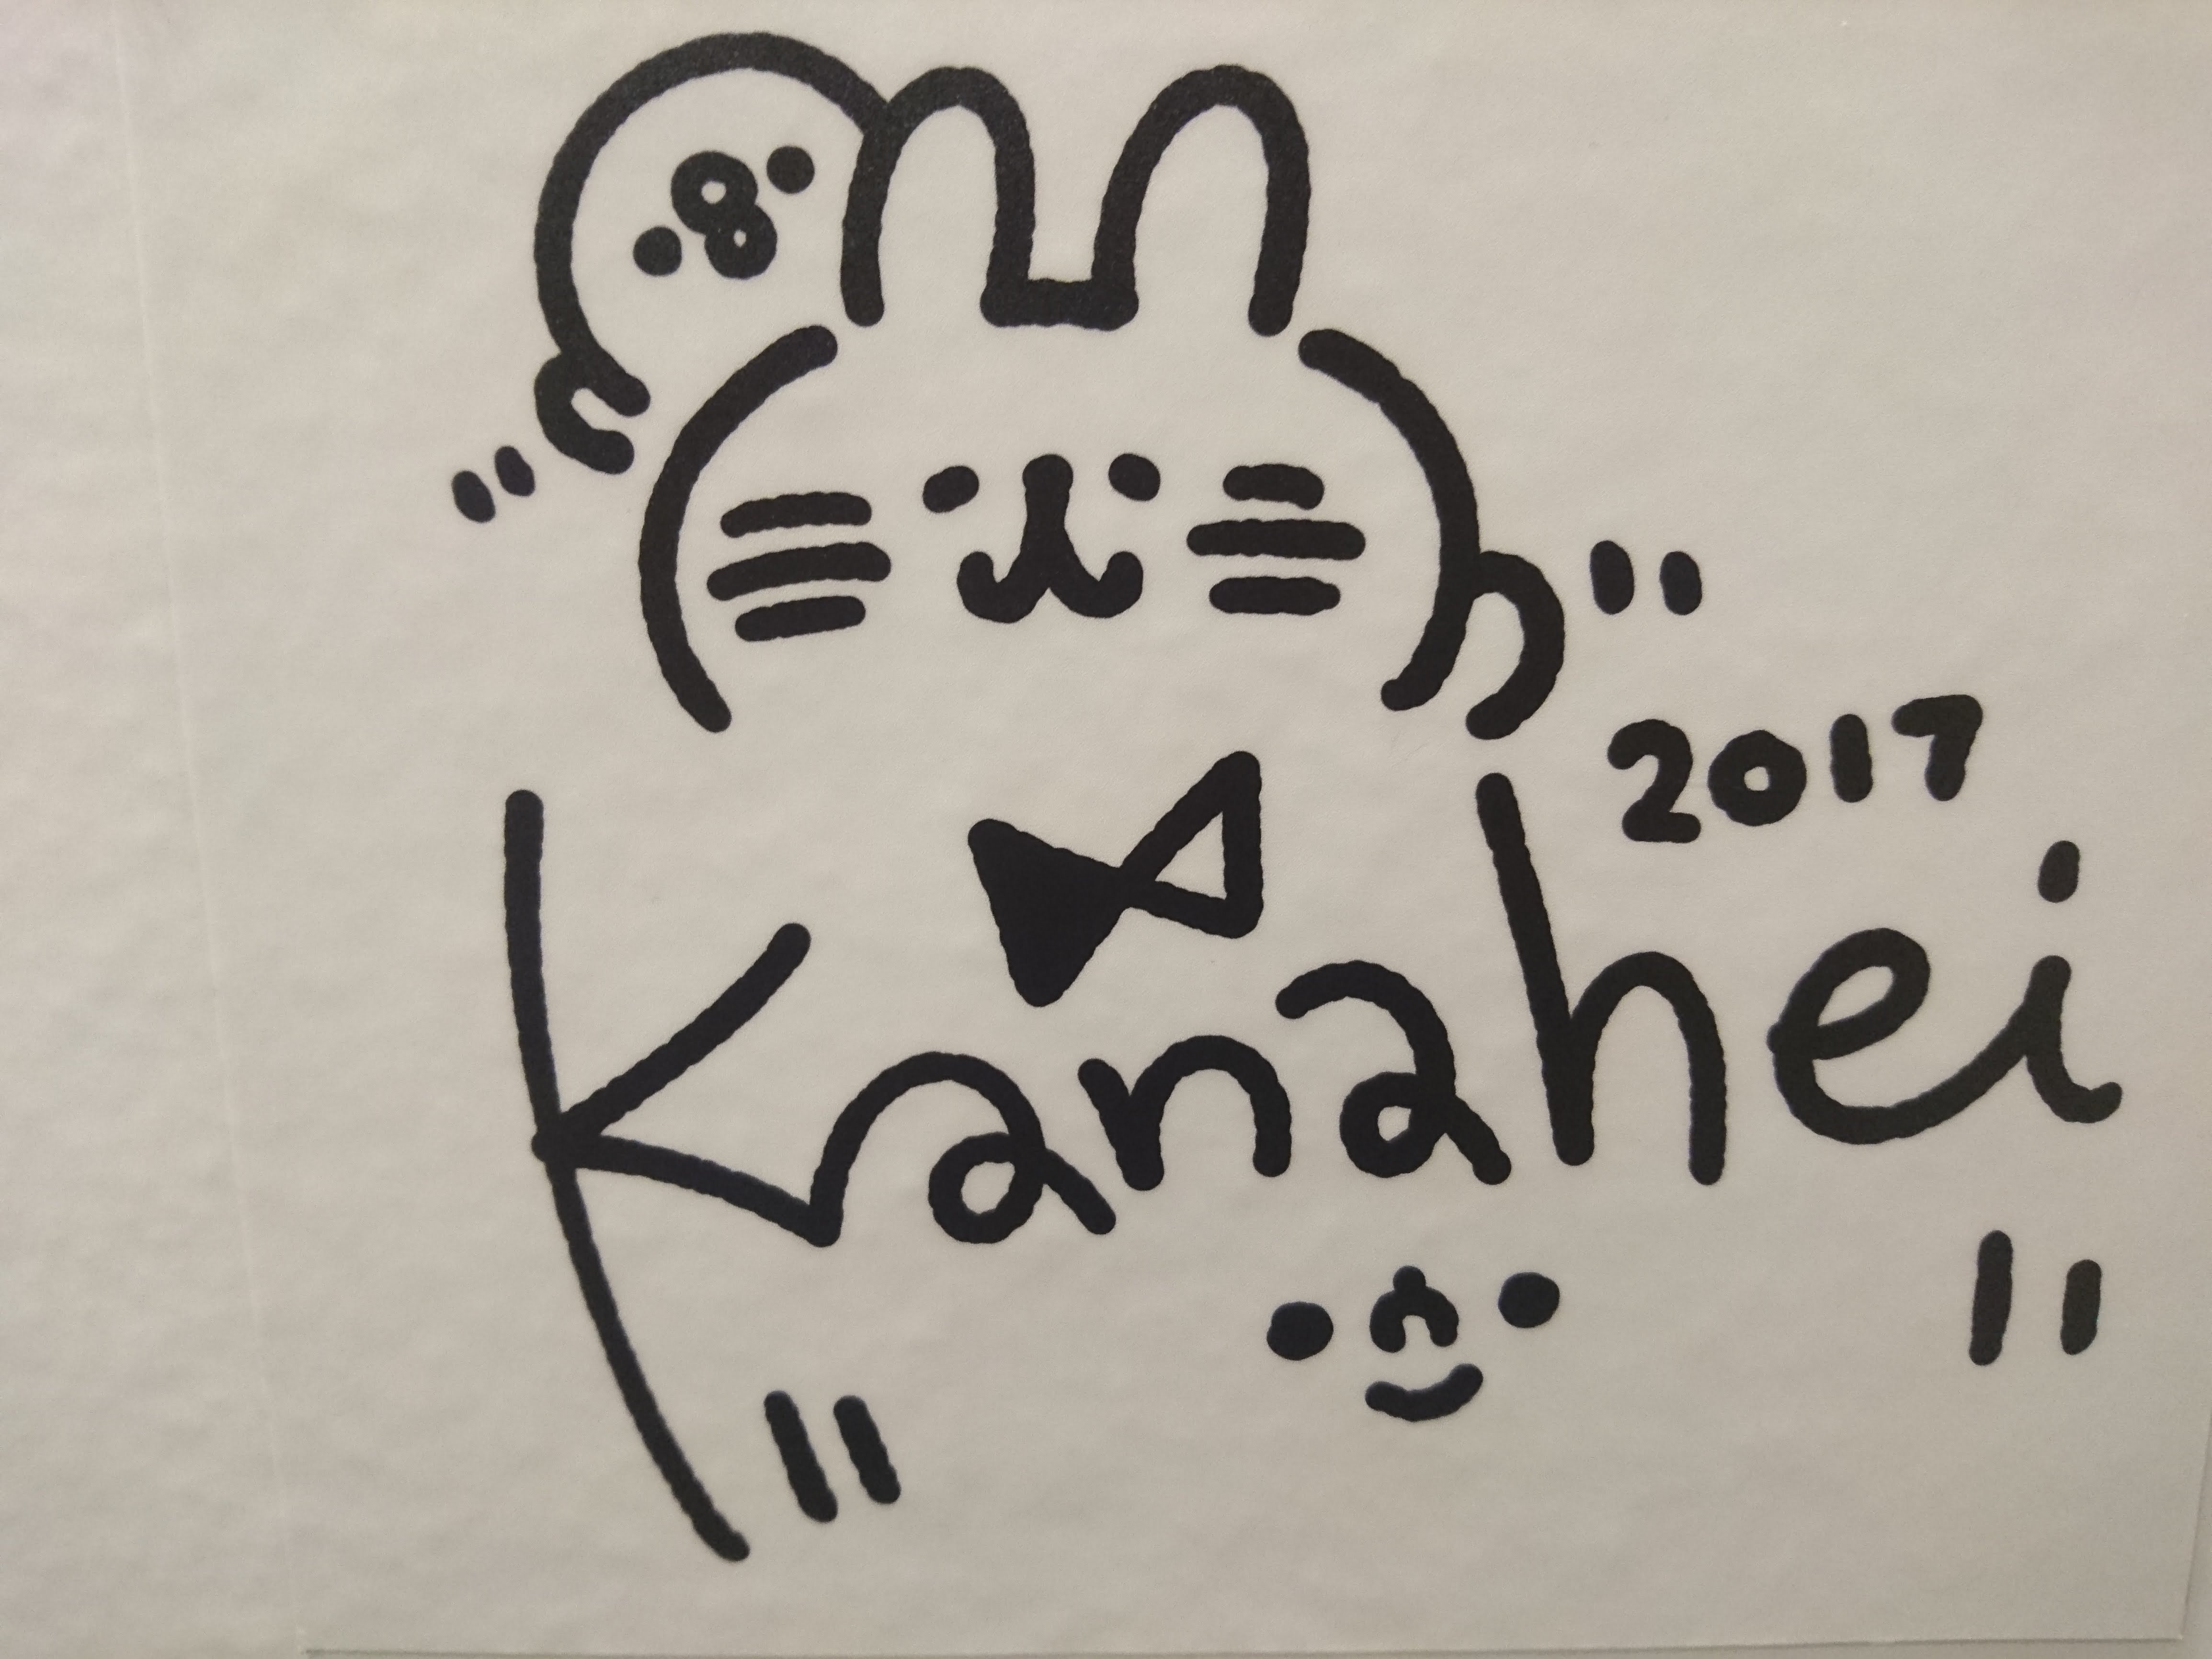 2017
Kanahei